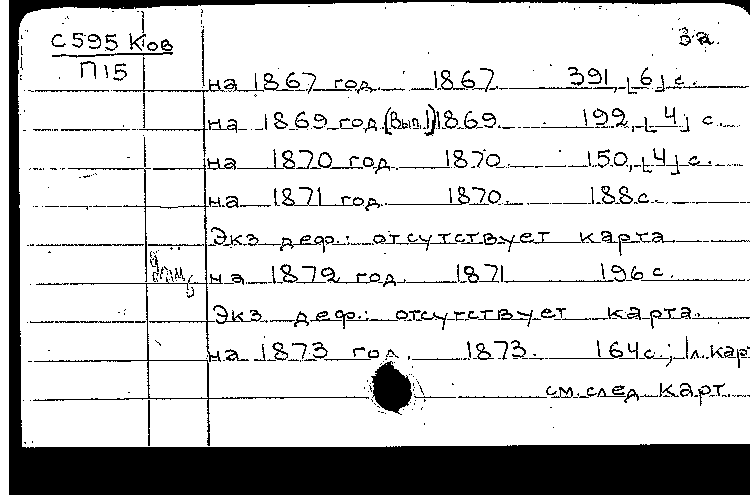 С595 Ков
П15
3а
на 1867 год. 1867. 391, [6] с.
на 1869 год. [Вып.1] 1869. 192, [4] с.
на 1870 год. 1870. 150, [4] с.
на 1871 год. 1870. 188с.
Экз. деф.: отсутствует карта.
на 1872 год. 1871 196с.
Экз. деф.: отсутствует карта.
на 1873 год. 1873. 164с.; 1л.карт
см. след карт.